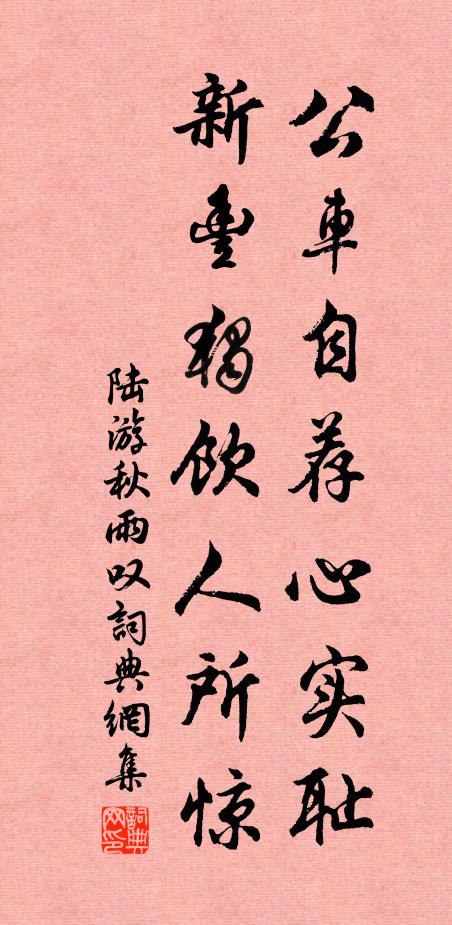 公車自荐心实耻
新豊獨飲人所惊
陆游秋雨叹詞典網集
詞典网印